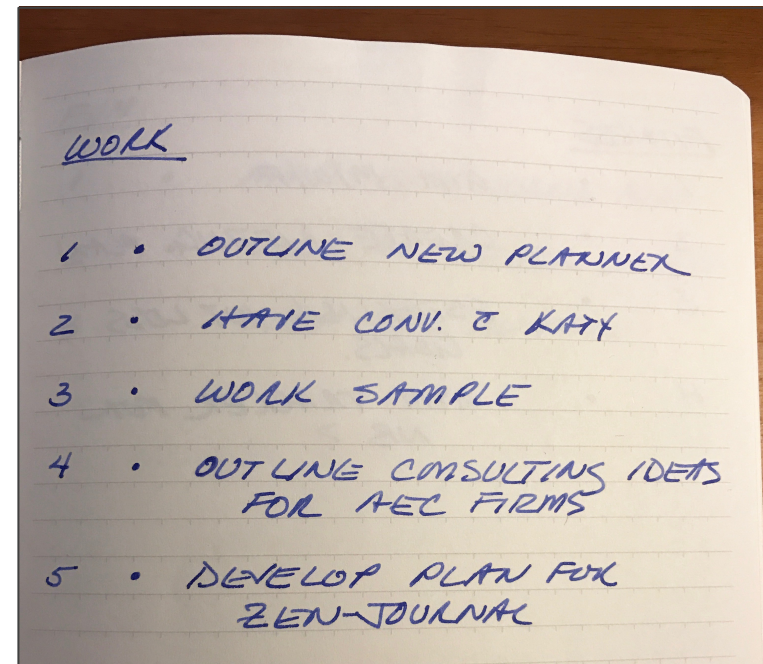 WORK
1 • OUTLINE NEW PLANNER
2 • HAVE CONV. c̄ KATY
3 • WORK SAMPLE
4 • OUTLINE CONSULTING IDEAS
FOR AEC FIRMS
5 • DEVELOP PLAN FOR
ZEN-JOURNAL